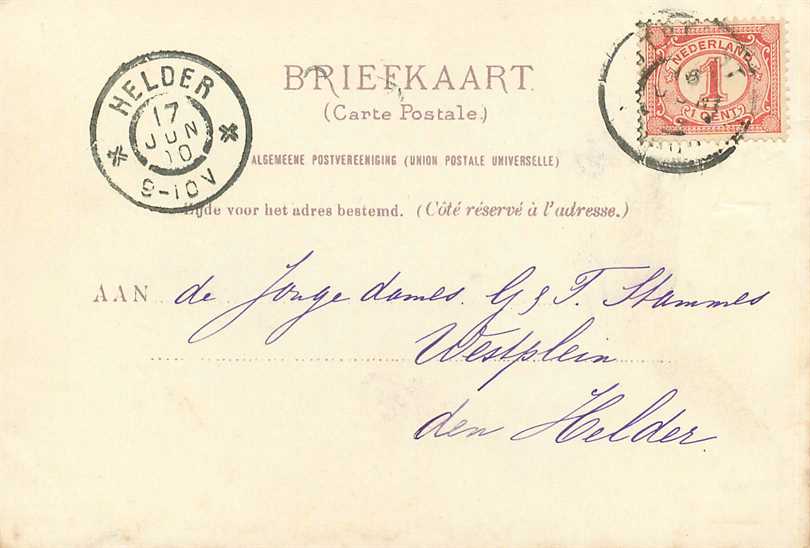 HELDER
17
JUN
10
9-10V
NEDERLAND
1
1 CENT
BRIEFKAART.
(Carte Postale.)
ALGEMEENE POSTVEREENIGING (UNION POSTALE UNIVERSELLE)
Zijde voor het adres bestemd. (Côté réservé à l'adresse.)
AAN de Jonge dames. G & T. Stammes
Westplein
den Helder.